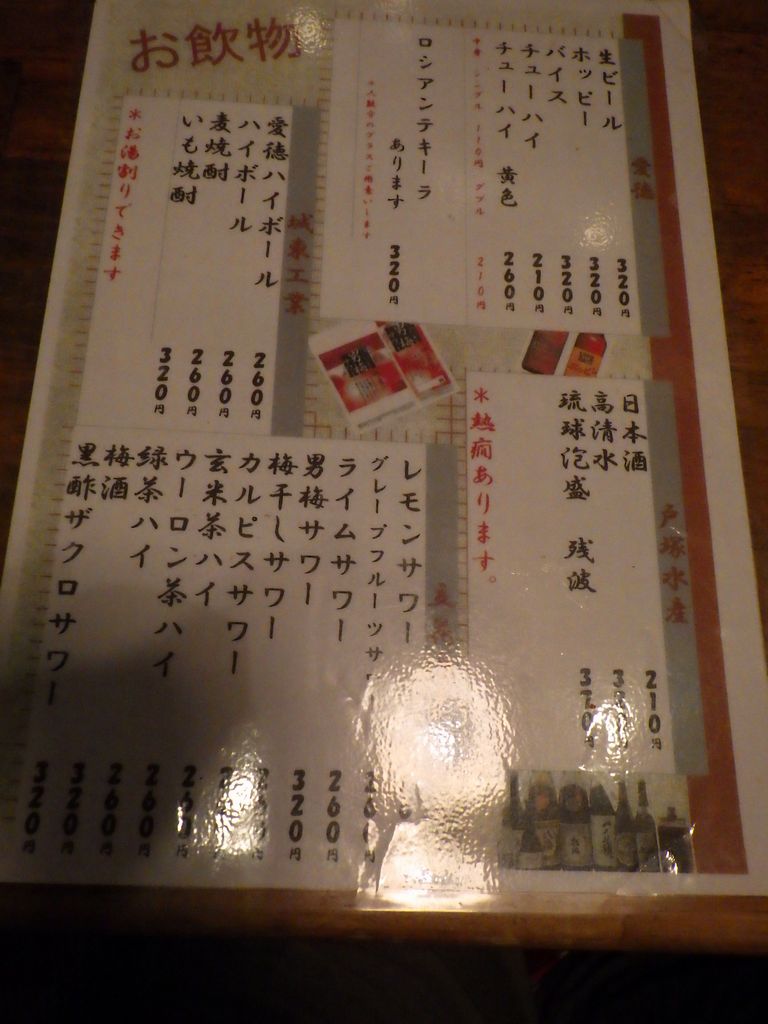 お飲物
愛徳
生ビール 320円
ホッピー 320円
バイス 320円
チューハイ 210円
チューハイ 黄色 260円
中身 シングル 110円 ダブル 210円
ロシアンテキーラ
あります 320円
城東工業
愛徳ハイボール 260円
ハイボール 260円
麦焼酎 260円
いも焼酎 320円
*お湯割りできます
戸塚水産
日本酒 210円
高清水
琉球泡盛 残波
*熱燗あります。
レモンサワー
グレープフルーツサワー
ライムサワー 260円
男梅サワー 320円
梅干しサワー
カルピスサワー
玄米茶ハイ 260円
ウーロン茶ハイ 260円
緑茶ハイ 260円
梅酒 320円
黒酢ザクロサワー 320円